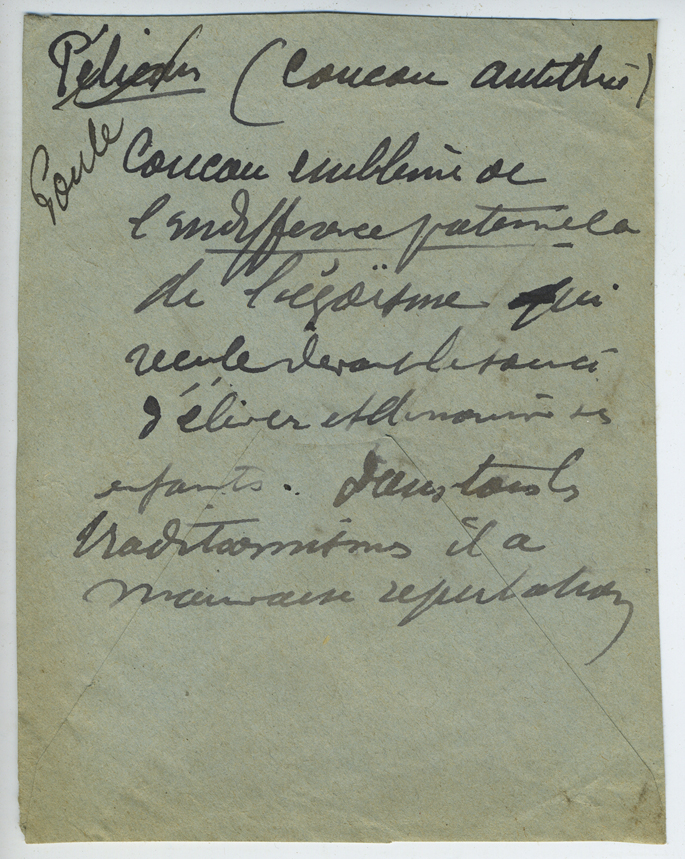 Pélican (Coucou antithèse)
Poule
Coucou emblème de
l'indifférence paternelle
de l'égoïsme qui
recule devant le souci
d'élever et de nourrir ses
enfants. Dans tous les
traditionnismes il a
mauvaise reputation